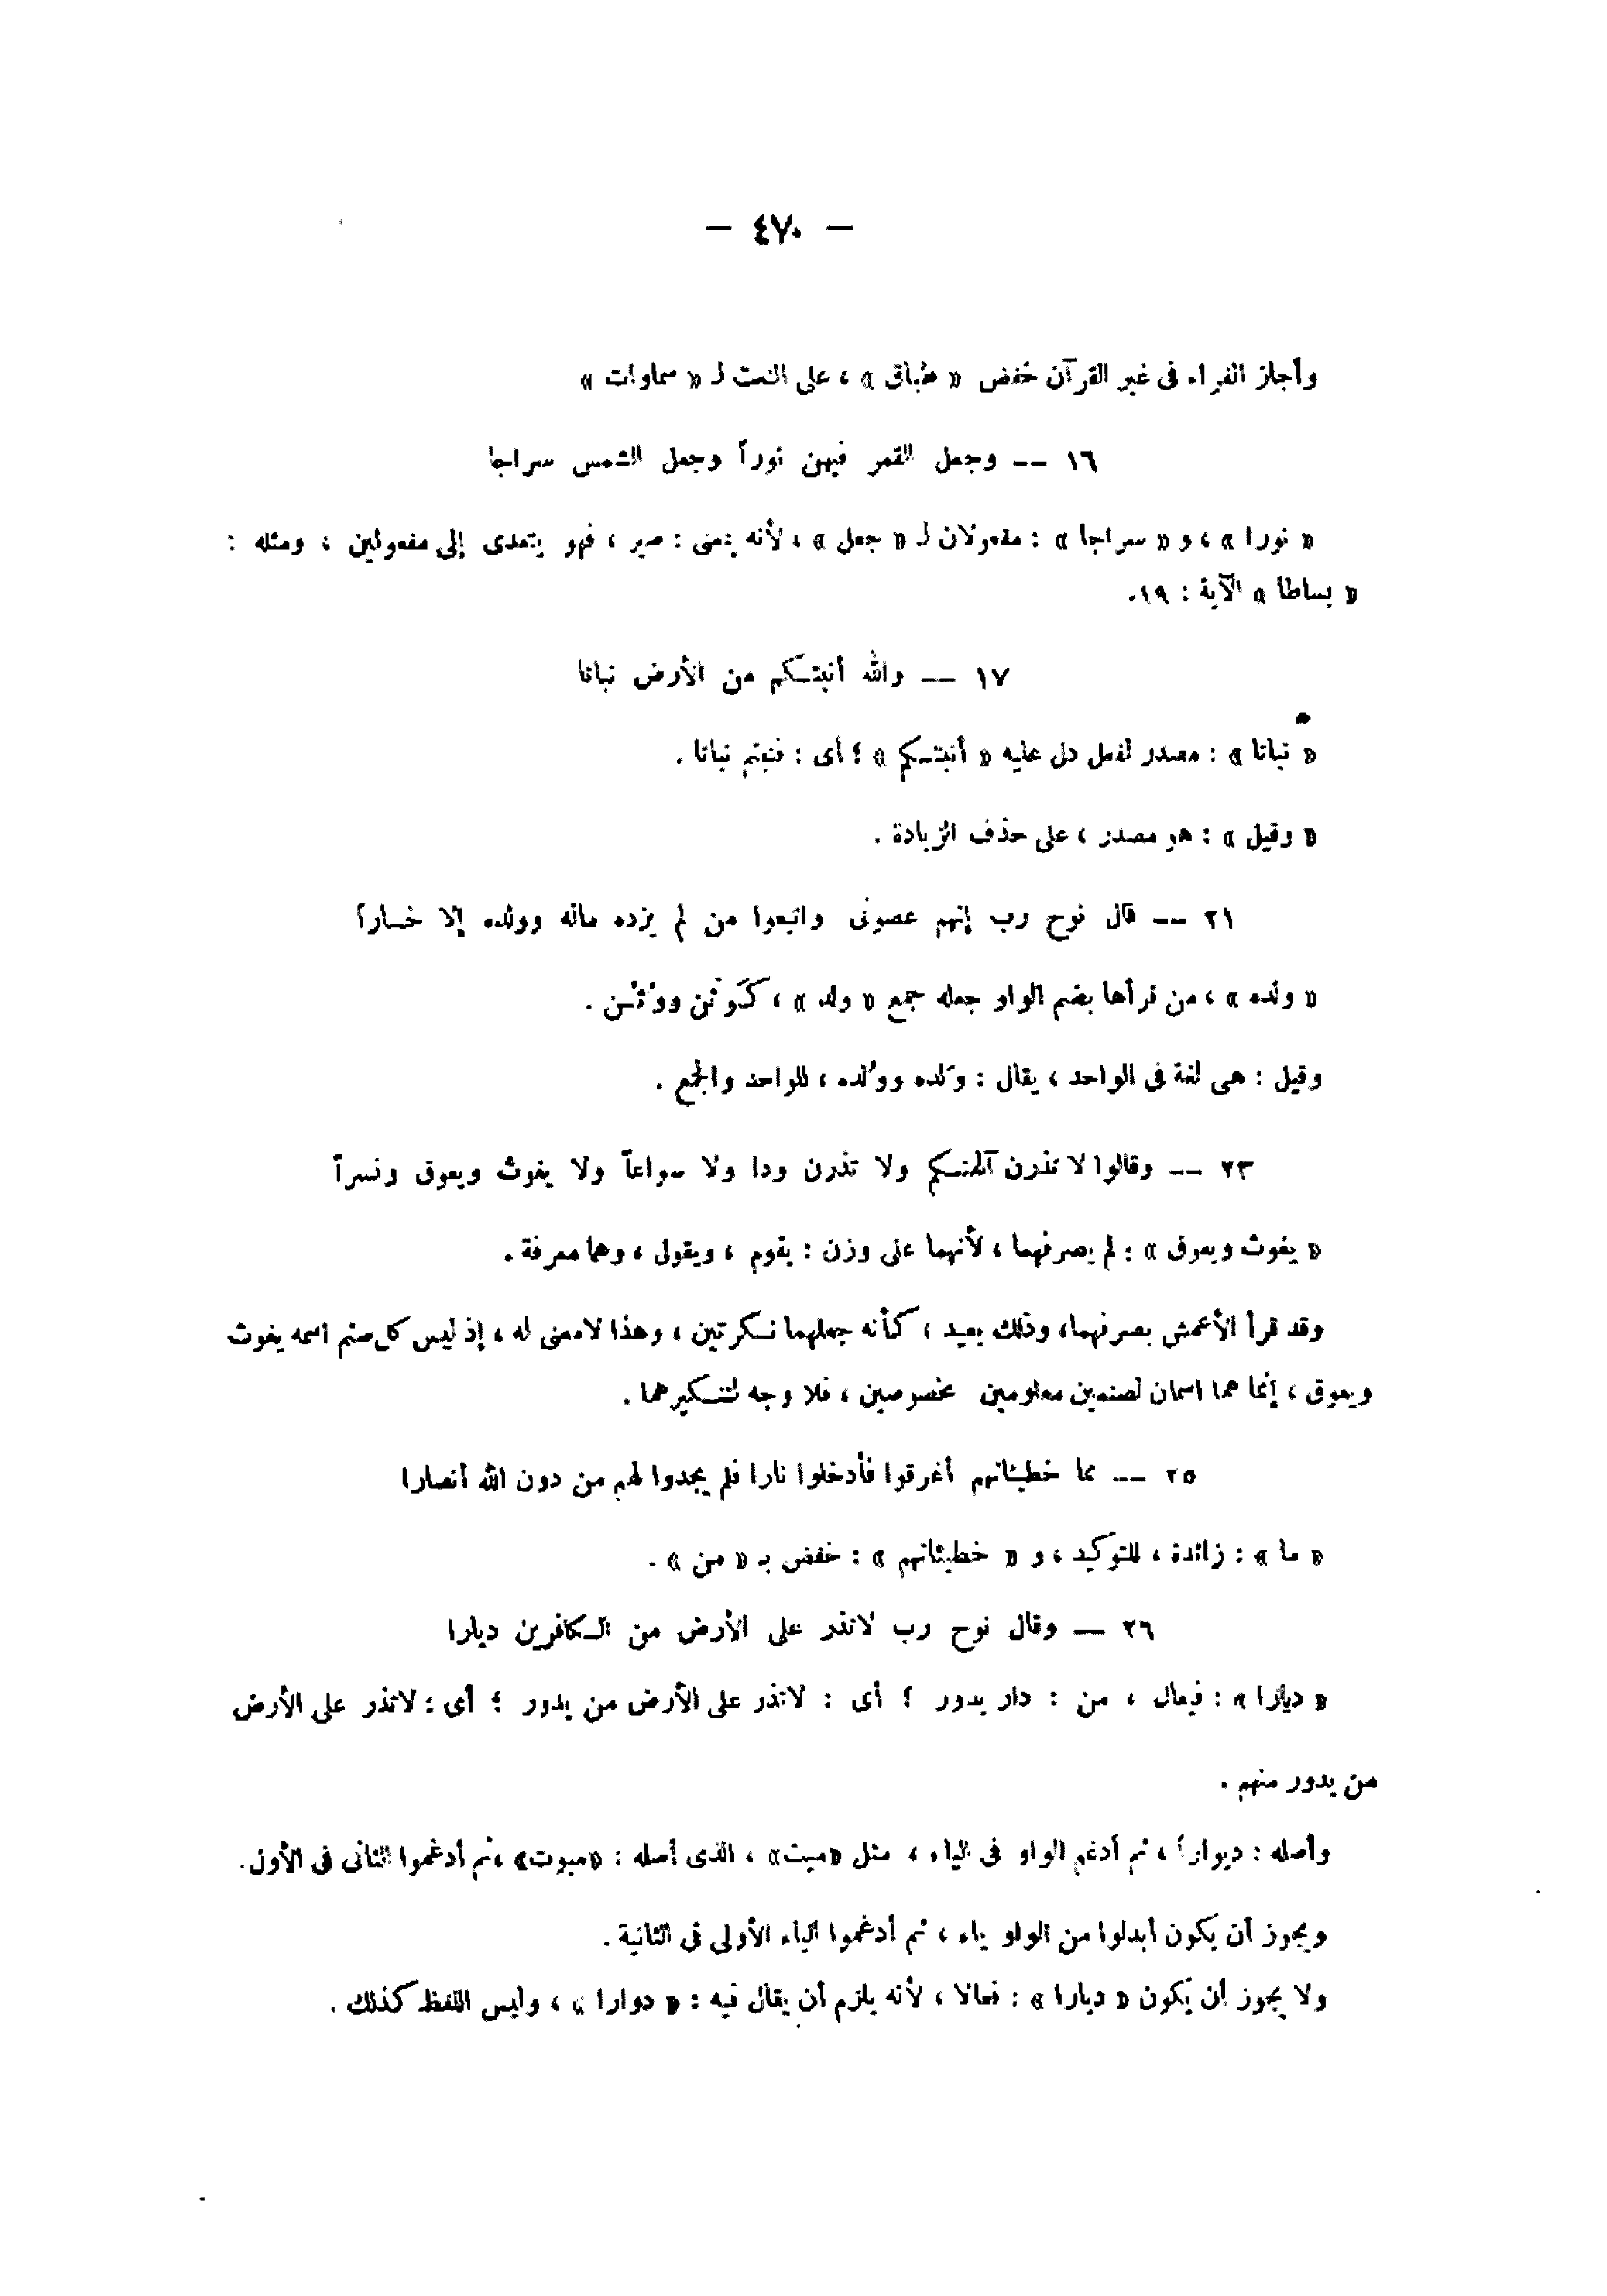 — ٤٧٠ —
وأجاز الفراء فى غير القرآن خفض « طباق » ، على النعت لـ « سماوات »
١٦ -- وجعل القمر فيهن نوراً وجعل الشمس سراجا
« نورا » ، و « سراجا » : مفعولان لـ « جعل » ، لأنه بمعنى : صير ، فهو يتعدى إلى مفعولين ، ومثله :
« بساطا » الآية : ١٩.
١٧ -- والله أنبتـكم من الأرض نباتا
« نباتا » : مصدر لفعل دل عليه « أنبتـكم » ؛ أى : فنبتم نباتا .
« وقيل » : هو مصدر ، على حذف الزيادة .
٢١ -- قال نوح رب إنهم عصونى واتبعوا من لم يزده ماله وولده إلا خساراً
« ولده » ، من قرأها بضم الواو جعله جمع « ولد » ، كَوَثَن ووُثْن .
وقيل : هى لغة فى الواحد ، يقال : وَلده ووُلده ، للواحد والجمع .
٢٣ -- وقالوا لا تذرن آلهتـكم ولا تذرن ودا ولا سواعاً ولا يغوث ويعوق ونسراً
« يغوث ويعوق » : لم يصرفهما ، لأنهما على وزن : يقوم ، ويقول ، وهما معرفة .
وقد قرأ الأعمش بصرفهما، وذلك بعيد ، كأنه جعلهما نـكرتين ، وهذا لامعنى له ، إذ ليس كل صنم اسمه يغوث
ويعوق ، إنما هما اسمان لصنمين معلومين مخصوصين ، فلا وجه لتنـكيرهما .
٢٥ -- مما خطيئاتهم أغرقوا فأدخلوا نارا فلم يجدوا لهم من دون الله أنصارا
« ما » : زائدة ، للتوكيد ، و « خطيئاتهم » : خفض بـ « من » .
٢٦ — وقال نوح رب لاتذر على الأرض من الـكافرين ديارا
« ديارا » : فيعال ، من : دار يدور ؛ أى : لاتذر على الأرض من يدور ؛ أى : لاتذر على الأرض
من يدور منهم .
وأصله : ديواراً ، ثم أدغم الواو فى الياء ، مثل «ميت» ، الذى أصله : «ميوت» ،ثم أدغموا الثانى فى الأول.
ويجوز أن يكون أبدلوا من الواو ياء ، ثم أدغموا الياء الأولى فى الثانية .
ولا يجوز أن يكون « ديارا » : فعالا ، لأنه يلزم أن يقال فيه : « دوارا » ، وليس اللفظ كذلك .